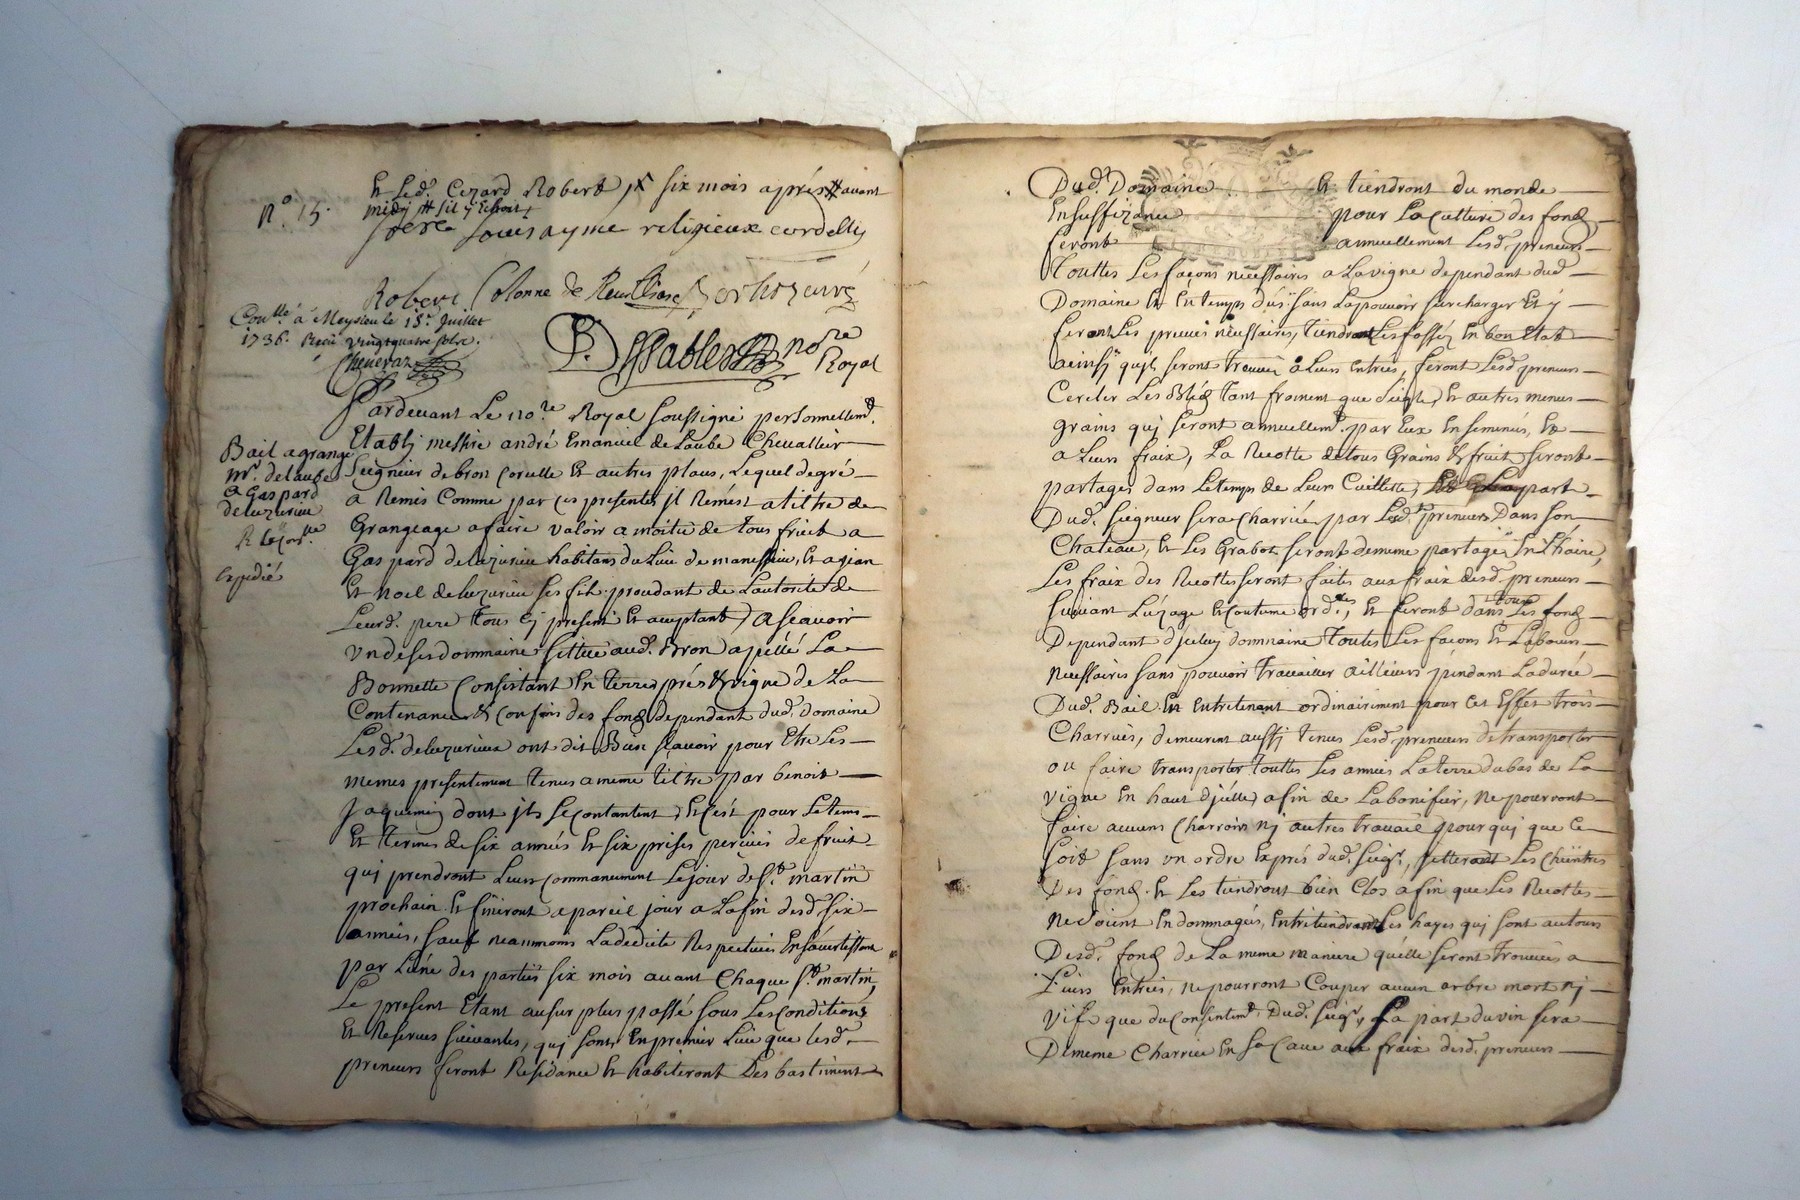 N.° 15.
Et Led. Cezard Robert six mois après avant
midy
Louis ayme religieux cordellié
Robert Colonne de
Con.llé a Meysieu le 15.e Juillet
1736. Receu vingt quatre solz.
Chenevaz
Sables no.re
Royal
Pardevant Le no.re Royal soussigné personnellem.t
Etably messire andré Emanuel de Laube Chevallier
Bail a grange
m.r delaube
a Gaspard
delezurieu
Expedié
Seigneur de bron Corcelle Et autres places, Lequel de gré
a Remis Comme par ces presentes jl Remest a tiltre de
Grangeage a faire valoir a moitié de tous fruict a
Gaspard delezurieu habitant du Lieu de manissieu, Et a jean
Et noel delezurieu ses fils procedant de Lautorité de
Leurd. pere Tous Cy present Et acceptant, a scavoir
Un de ses dommaine sittué aud. Bron apellé La
Bonnette Consistant En terres prés & vigne de La
Contenance & confins des fond dependant dud. Domaine
Lesd. delezurieux ont dit Bien scavoir pour Etre Les
memes presentement tenus a meme tiltre par benoit
Jaquemin dont jls se contantent, Et C'est pour Le tems
Et termes de six années Et six prises perceues de fruit
quj prendront Leurs commancement Le jour de S.t martin
prochain Et finiront a pareil jour a La fin desd. six
années, sauf neanmoins La dedicte Respective En s'avertissant
par L'une des parties six mois avant Chaque S.t martin,
Le present Etant au surplus passé sous Les conditions
Et Reserves suivantes, quj sont, En premier Lieu que lesd.
preneurs feront Residance Et habiteront Des bastiment
Dud. Domaine Et tiendront du monde
En suffizance pour La culture des fond,
feront annuellement Lesd. preneurs
Touttes Les façons necessaires a La vigne dependant dud
Domaine Et En temps dû, sans La pouvoir surcharger Et y
feront Les preuves necessaires, tiendront Les fossés En bon Etat
ainsÿ qu'jls seront trouvés a Leurs Entrées, feront Lesd. preneurs
Cercler Les Bléd Tant froment que seigle, Et autres menus
grains quj seront annuellem.t par Eux Ensemencés, Et
a Leurs fraix, La Recotte de tous Grains & fruit seront
partagés dans Le temps de Leurs Cuillette, La part
Dud. seigneur sera Charriée par Lesd. preneurs Dans son
Chateau, Et Les Grabot seront de meme partagé En L'haire,
Les fraix des Recottes seront faites aux fraix desd. preneurs
suivant L'uzage Et coutume ord.res, Et feront dans tous Les fond
Dependant d'jceluy dommaine toutes Les façons Et Labours
necessaires sans pouvoir travailler ailleurs pendant La durée
Dud. Bail En Entretenant ordinairement pour Cet Effet trois
Charrues, demeurent aussj tenus Lesd. preneurs de transporter
ou faire transporter touttes Les années La terre du bas de La
vigne En haut d'jcelle, afin de La bonifier, ne pourront
faire aucuns Charrois nj autres travail pour quj que Ce
soit sans un ordre Exprés dud. seig.r, jetteront Les Cheintres
Des fond Et Les tiendront bien Clos afin que Les Recottes
ne soient Endommagés, Entretiendront Les hayes quj sont autours
Desd. fond de La meme maniere qu'elle seront trouvées a
Leurs Entrées, ne pourront Couper aucun arbre mort nj
vif que du consentem.t Dud. seig.r, La part du vin sera
De meme Charriée En sa Cave aux fraix desd. preneurs